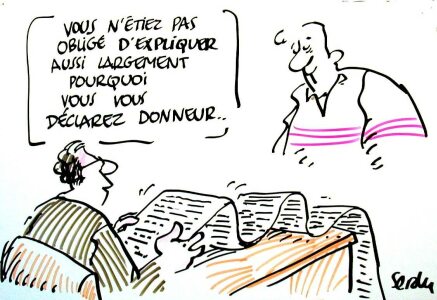 VOUS N'ÉTIEZ PAS
OBLIGÉ D'EXPLIQUER
AUSSI LARGEMENT
POURQUOI
VOUS VOUS
DÉCLAREZ DONNEUR..
Serdu